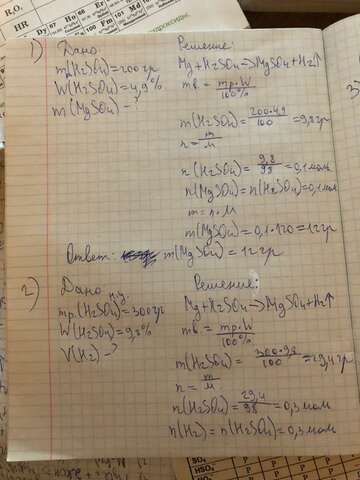 R.O.
HR
1) Дано
m(H2SO4)=200гр
W(H2SO4)=4,9%
m(MgSO4)-?
Решение:
Mg+H2SO4→MgSO4+H2↑
mв = mр·W
100%
m(H2SO4)= 200·4,9
100 =9,8гр
n= m
M
n(H2SO4)= 9,8
98 =0,1моль
n(MgSO4)=n(H2SO4)=0,1мол
m=n·M
m(MgSO4)=0,1·120=12гр
Ответ: m(MgSO4)=12гр
2) Дано
mр.(H2SO4)=300гр
W(H2SO4)=9,8%
V(H2)-?
Решение:
Mg+H2SO4→MgSO4+H2↑
mв = mр·W
100%
m(H2SO4)= 300·9,8
100 =29,4гр
n= m
M
n(H2SO4)= 29,4
98 =0,3мол
n(H2)=n(H2SO4)=0,3мол